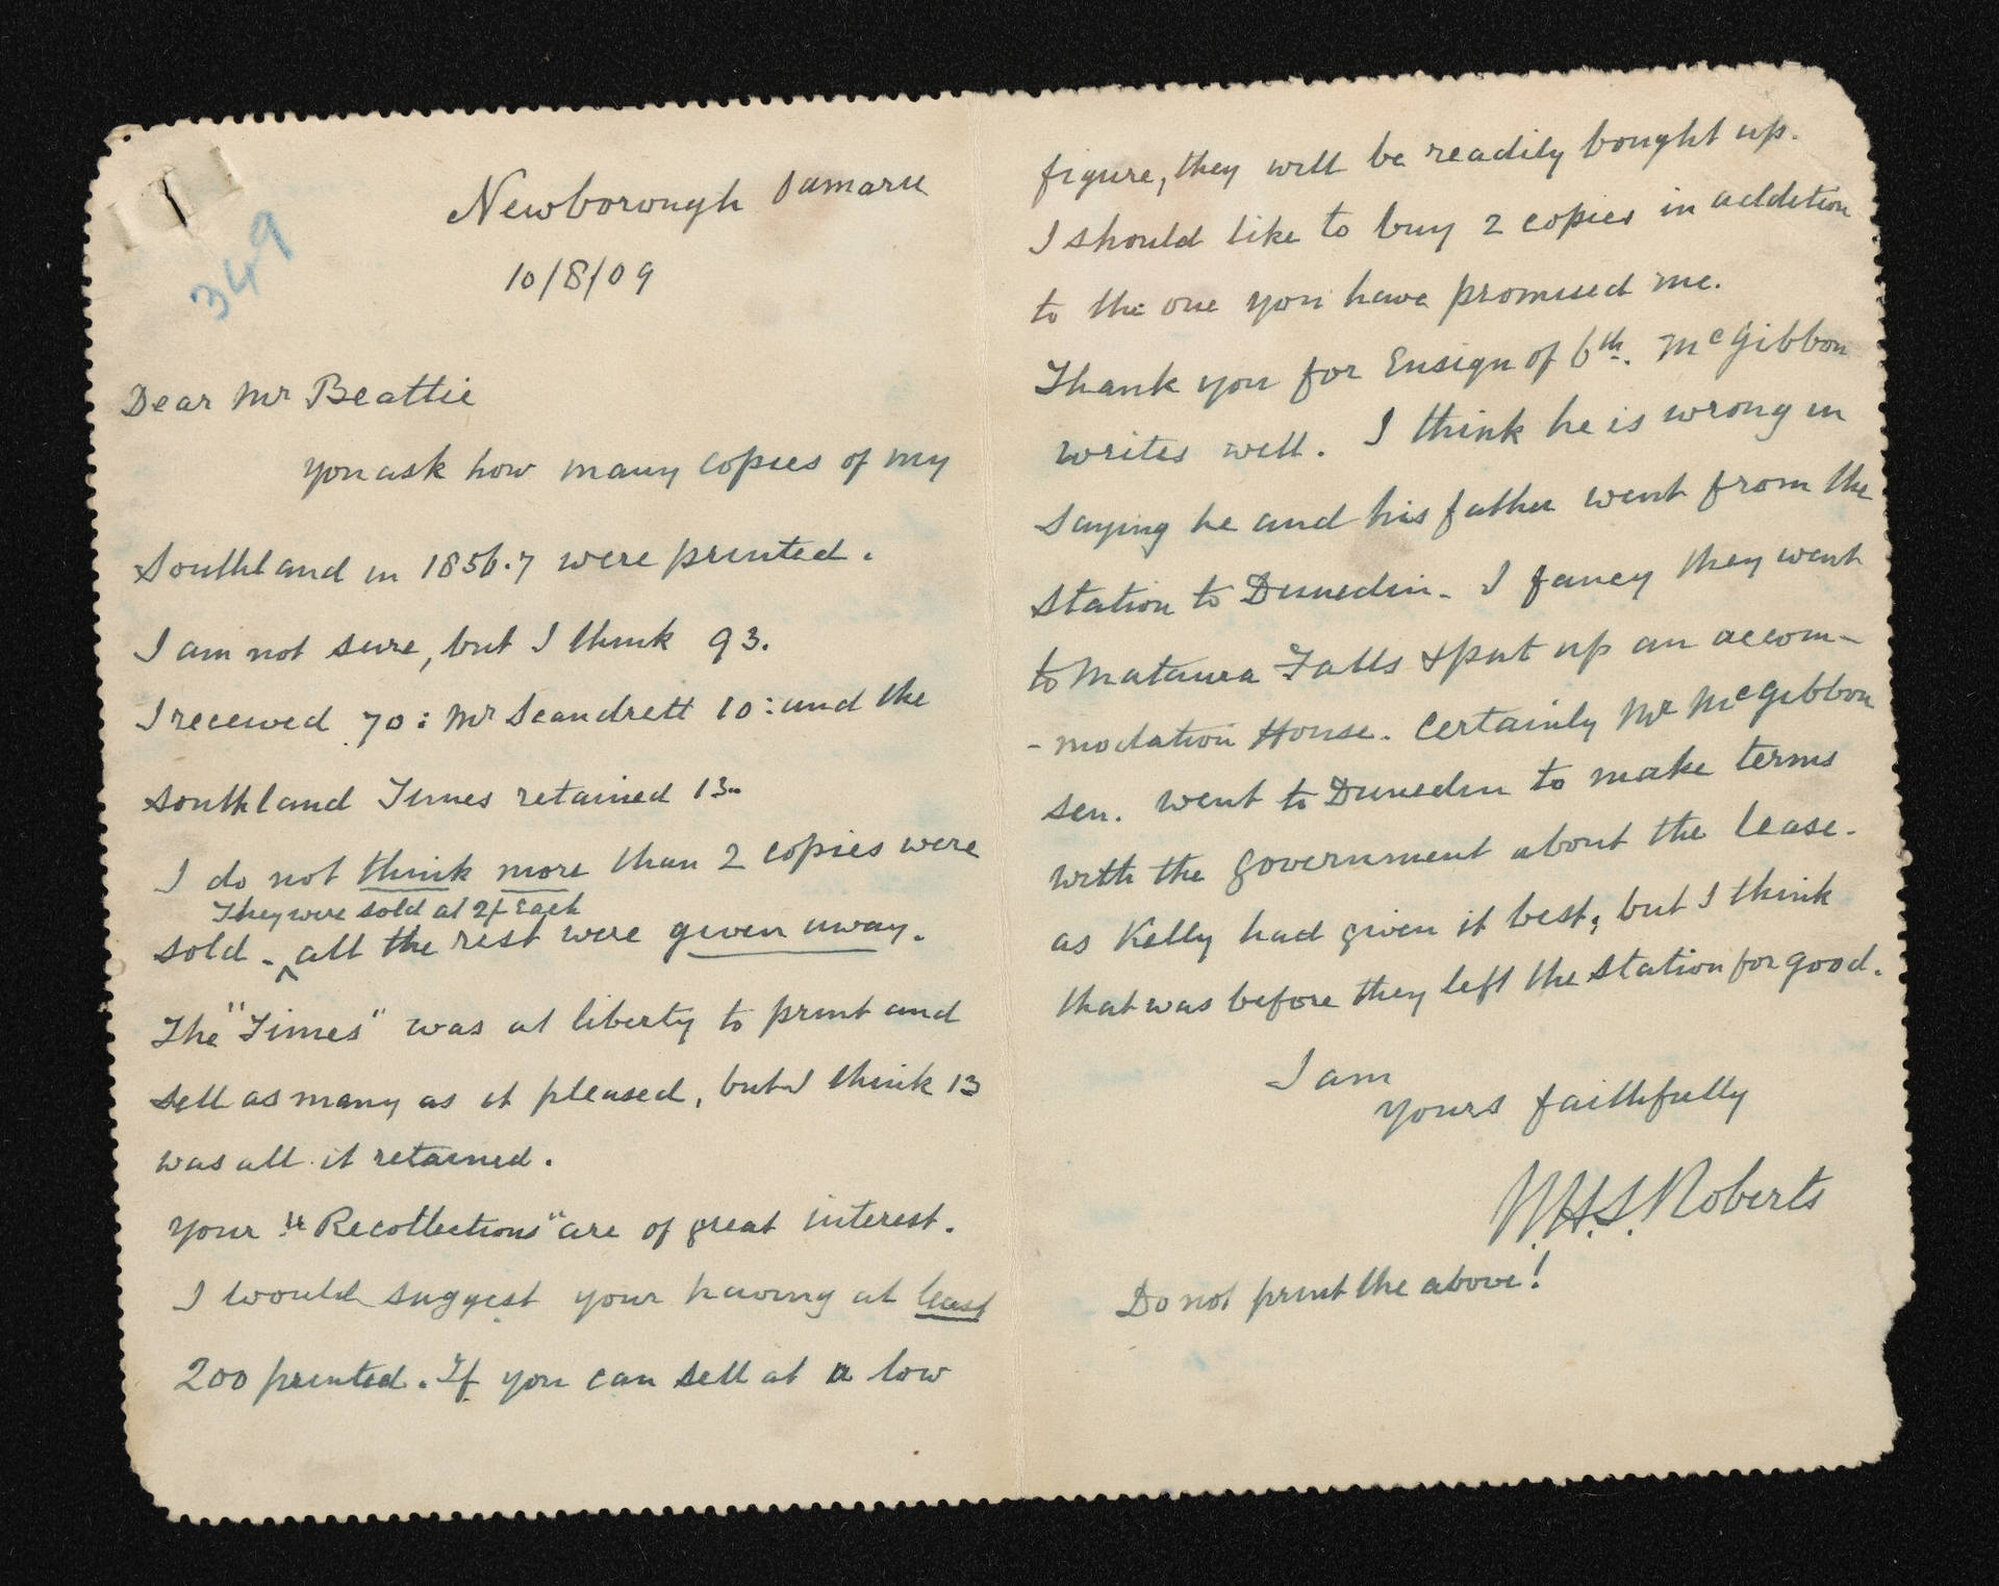 349
Newborough Oamaru
10/8/09
Dear Mr Beattie
you ask how many copies of my
Southland in 1856.7 were printed.
I am not sure, but I think 93.
I received 70: Mr Scandrett 10: and the
Southland Times retained 13.
I do not think more than 2 copies were
They were sold at 2/- Each
sold - ^ all the rest were given away.
The "Times" was at liberty to print and
sell as many as it pleased, but I think 13
was all it retained.
Your "Recollections" are of great interest.
I would suggest your having at least
200 printed. If you can sell at a low
figure, they will be readily bought up.
I should like to buy 2 copies in addition
to the one you have promised me.
Thank you for Ensign of 6th. McGibbon
writes well. I think he is wrong in
saying he and his father went from the
Station to Dunedin. I fancy they went
to Mataura Falls & put up an accom-
-modation House. Certainly Mr McGibbon
sen. went to Dunedin to make terms
with the government about the lease.
as Kelly had given it best, but I think
that was before they left the Station for good.
I am
yours faithfully
W.H.S. Roberts
Do not print the above!